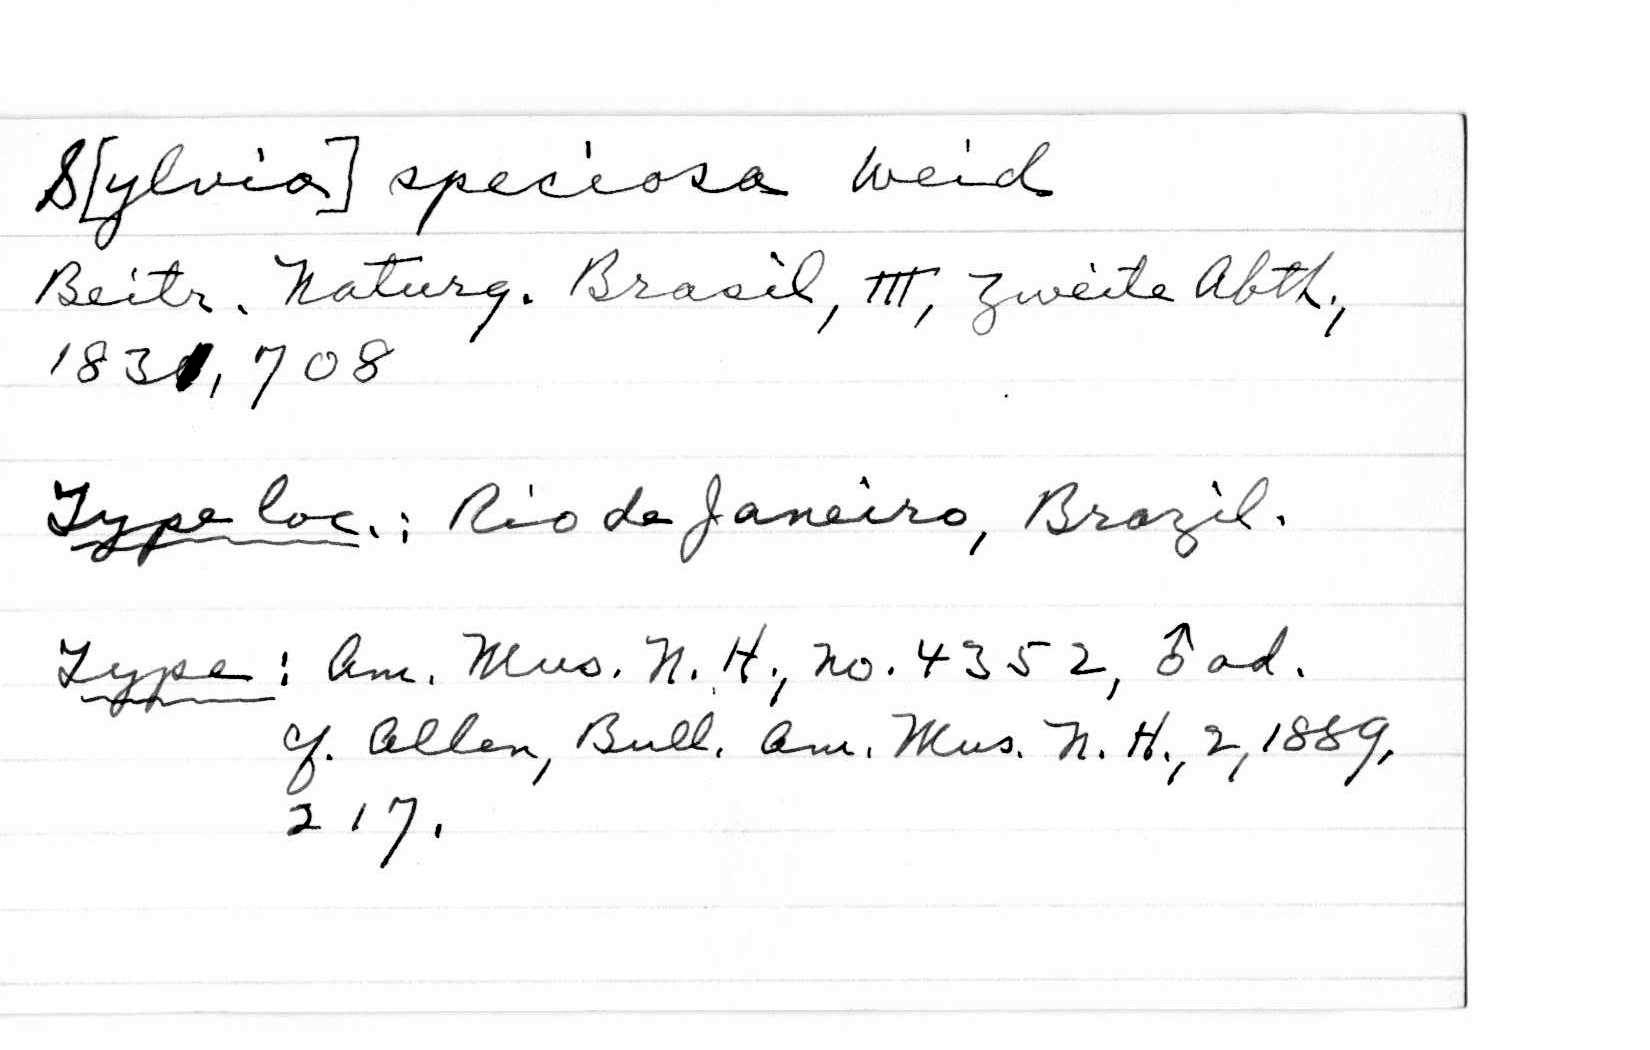 S[ylvia] speciosa Weid
Beitr. Naturg. Brasil, III, Zweite Abth.,
1831, 708
Type loc.: Rio de Janeiro, Brazil.
Type: Am. Mus. N. H., no. 4352, ♂ ad.
cf. Allen, Bull. Am. Mus. N. H., 2, 1889,
217.